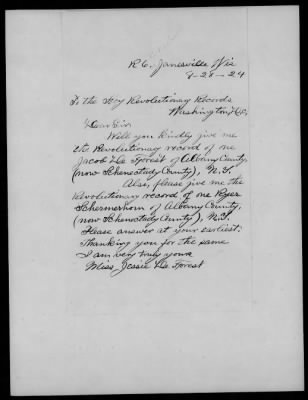 R6, Janesville, Wis
8-28-24
To the Secy Revolutionary Records
Washington, D.C.
Dear Sir:
Will you kindly give me
the Revolutionary record of one
Jacob De Forest of Albany County
(now Schenectady County), N.Y.
Also, please give me the
Revolutionary record of one Ryer
Schermerhorn of Albany County,
(now Schenectady County), N.Y.
Please answer at your earliest.
Thanking you for the same
I am very truly yours
Miss Jessie De Forest